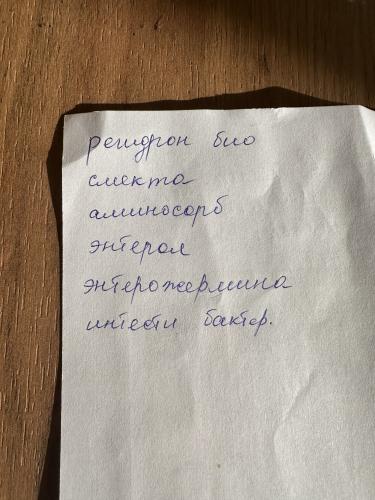 регидрон био
смекта
аминосорб
энтерол
энтерожермина
интести бактер.